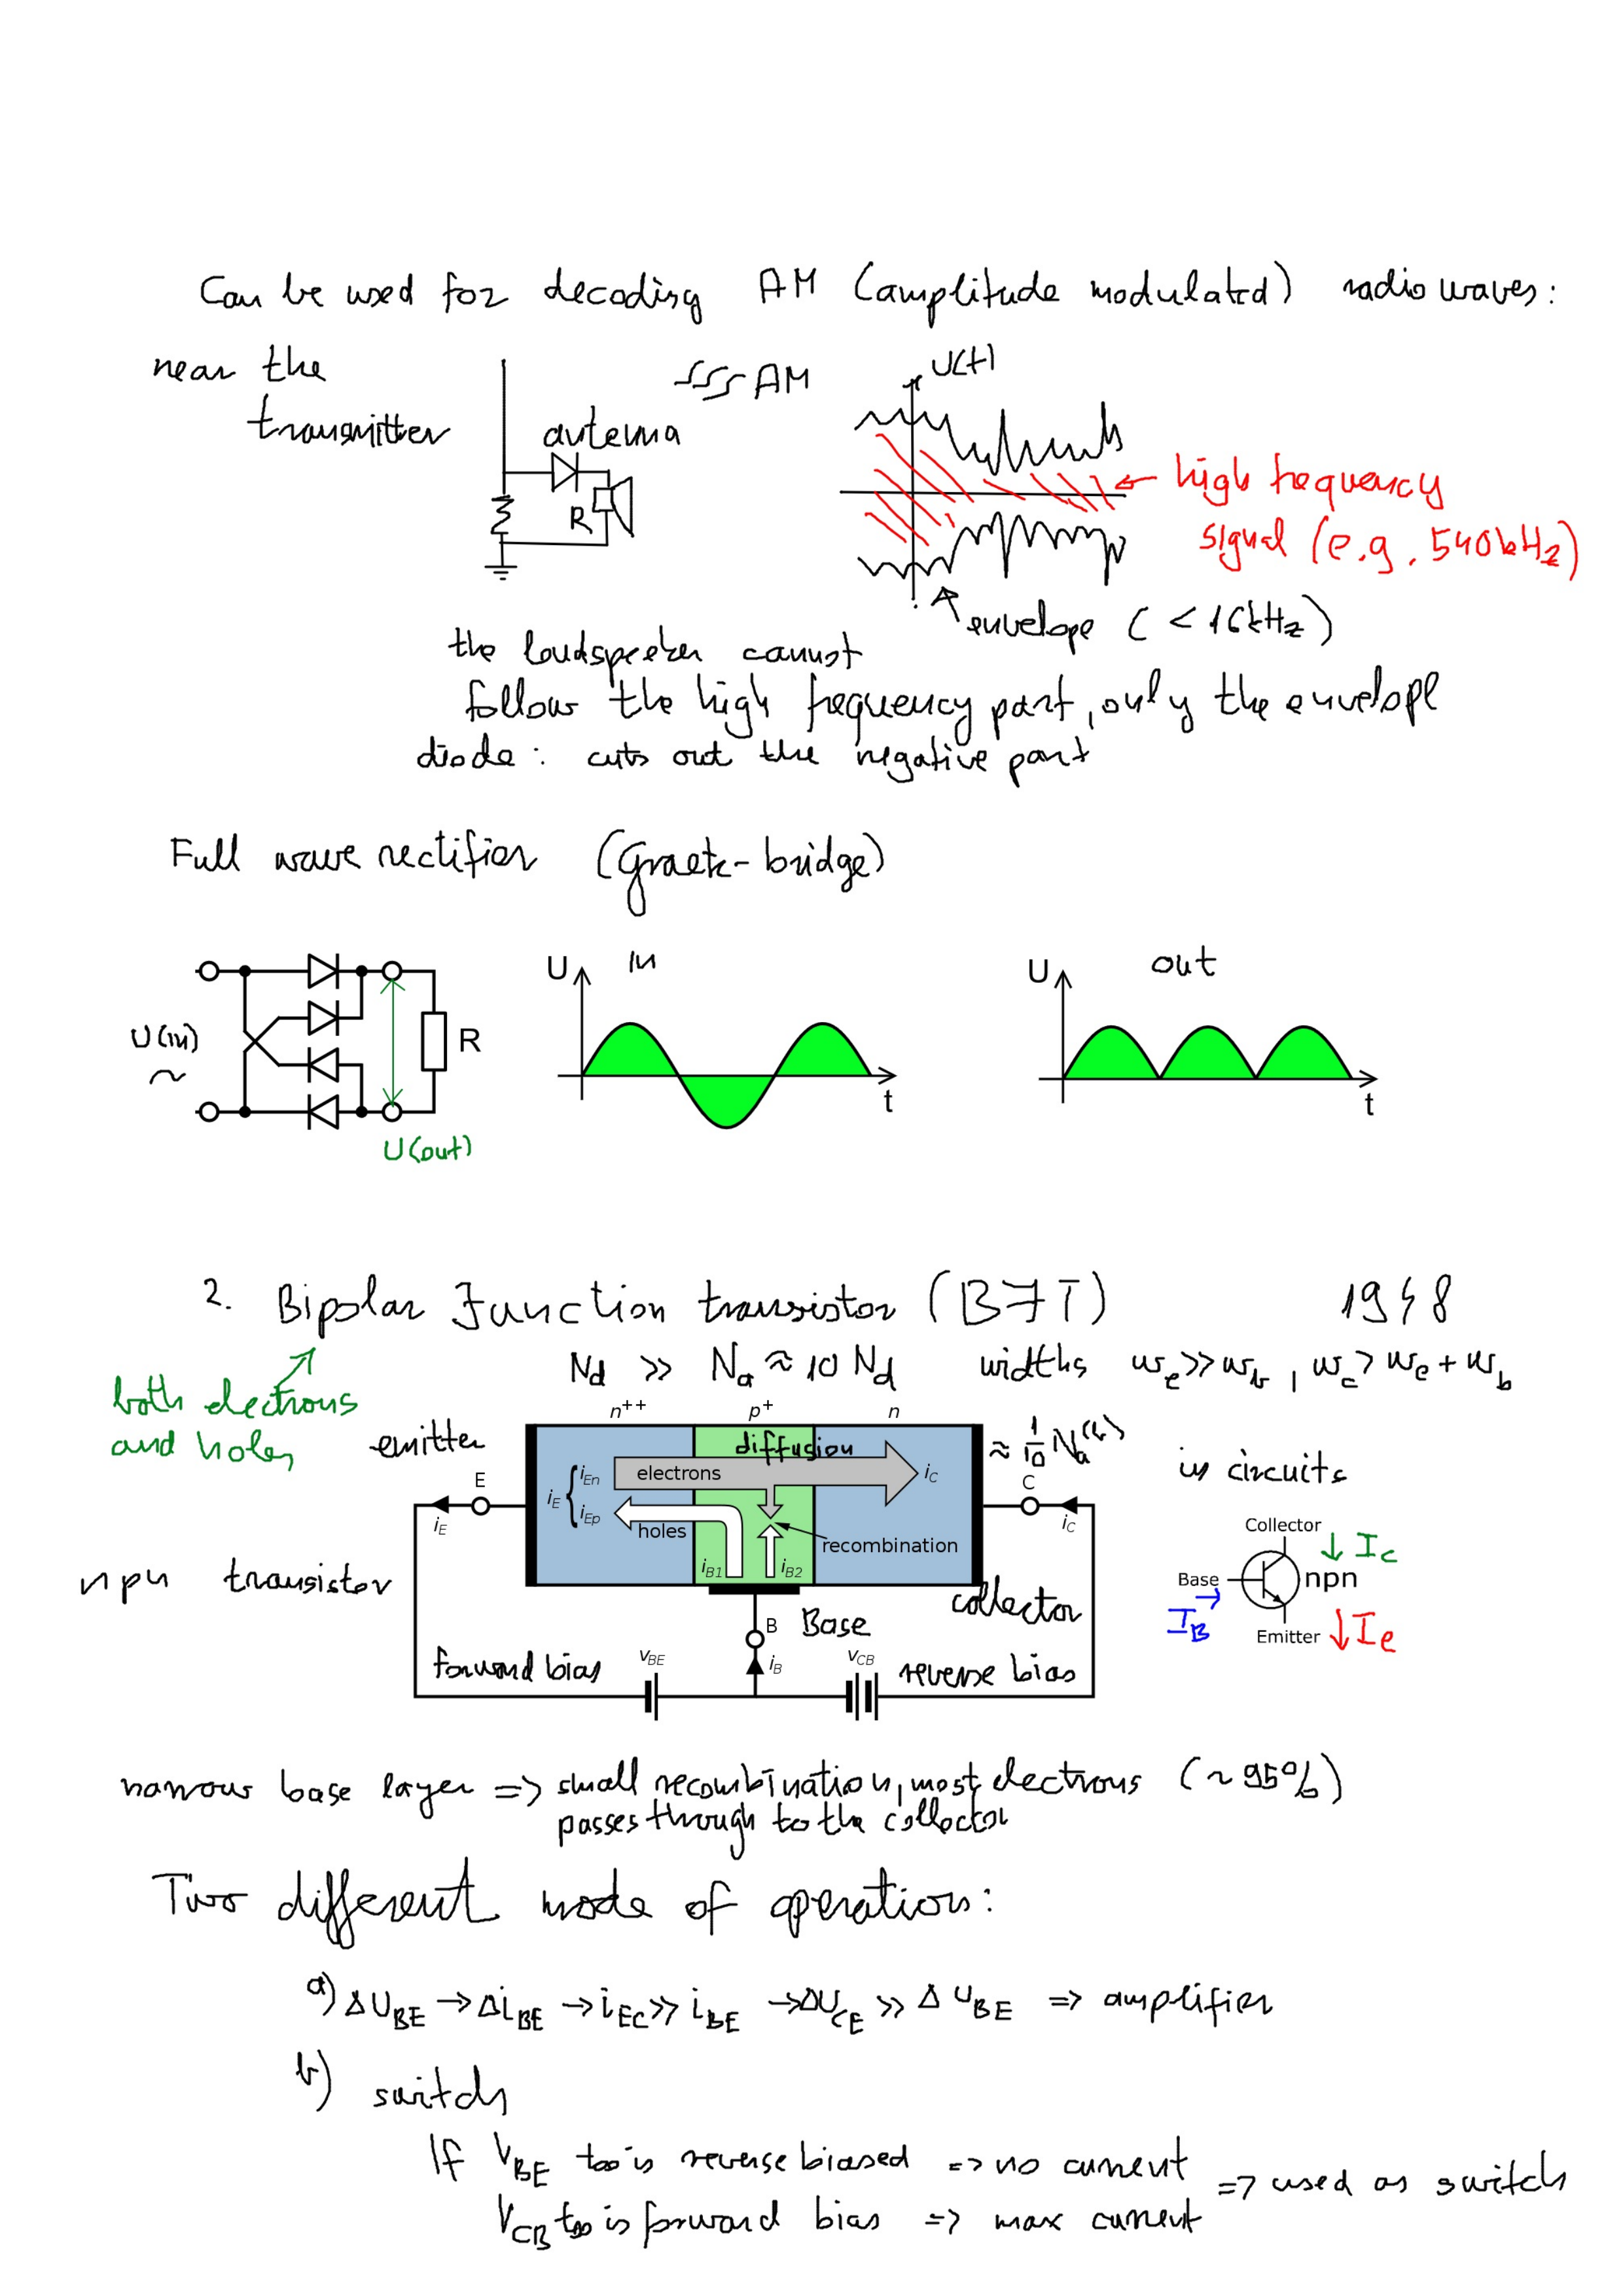 Can be used for decoding AM (amplitude modulated) radio waves:
near the
transmitter
antenna
AM
U(t)
R
high frequency
signal (e.g. 540kHz)
envelope ( < 16kHz )
the loudspeaker cannot
follow the high frequency part, only the envelope
diode: cuts out the negative part
Full wave rectifier (Graetz-bridge)
U(in)
~
R
U(out)
U
in
t
U
out
t
2. Bipolar Junction transistor (BJT) 1948
Nd >> Na ≈ 10 Nd widths we >> wb, wc > we + wb
both electrons
and holes
n++ p+ n
emitter
diffusion
≈ 1/10 Na(b)
in circuits
E
iE
iE { iEn
iEp
electrons
iC
holes
recombination
iB1
iB2
C
iC
npn transistor
collector
B Base
iB
forward bias
vBE
vCB
reverse bias
Collector
↓ Ic
Base
npn
→
IB
Emitter
↓ Ie
narrow base layer => small recombination, most electrons (~95%)
passes through to the collector
Two different mode of operation:
a) ΔUBE → ΔiBE → iEC >> iBE → ΔUCE >> ΔUBE => amplifier
b) switch
If VBE too is reverse biased => no current
VCB too is forward bias => max current
=> used as switch